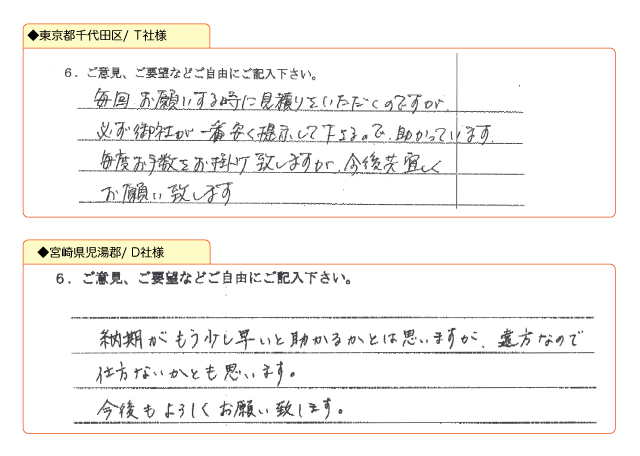 ◆東京都千代田区/ T社様
6．ご意見、ご要望などご自由にご記入下さい。
毎回、お願いする時に見積りをいただくのですが、
必ず御社が一番安く提示して下さるので、助かっています。
毎度お手数をお掛け致しますが、今後共宜しく
お願い致します
◆宮崎県児湯郡/ D社様
6．ご意見、ご要望などご自由にご記入下さい。
納期がもう少し早いと助かるかとは思いますが、遠方なので
仕方ないかとも思います。
今後もよろしくお願い致します。